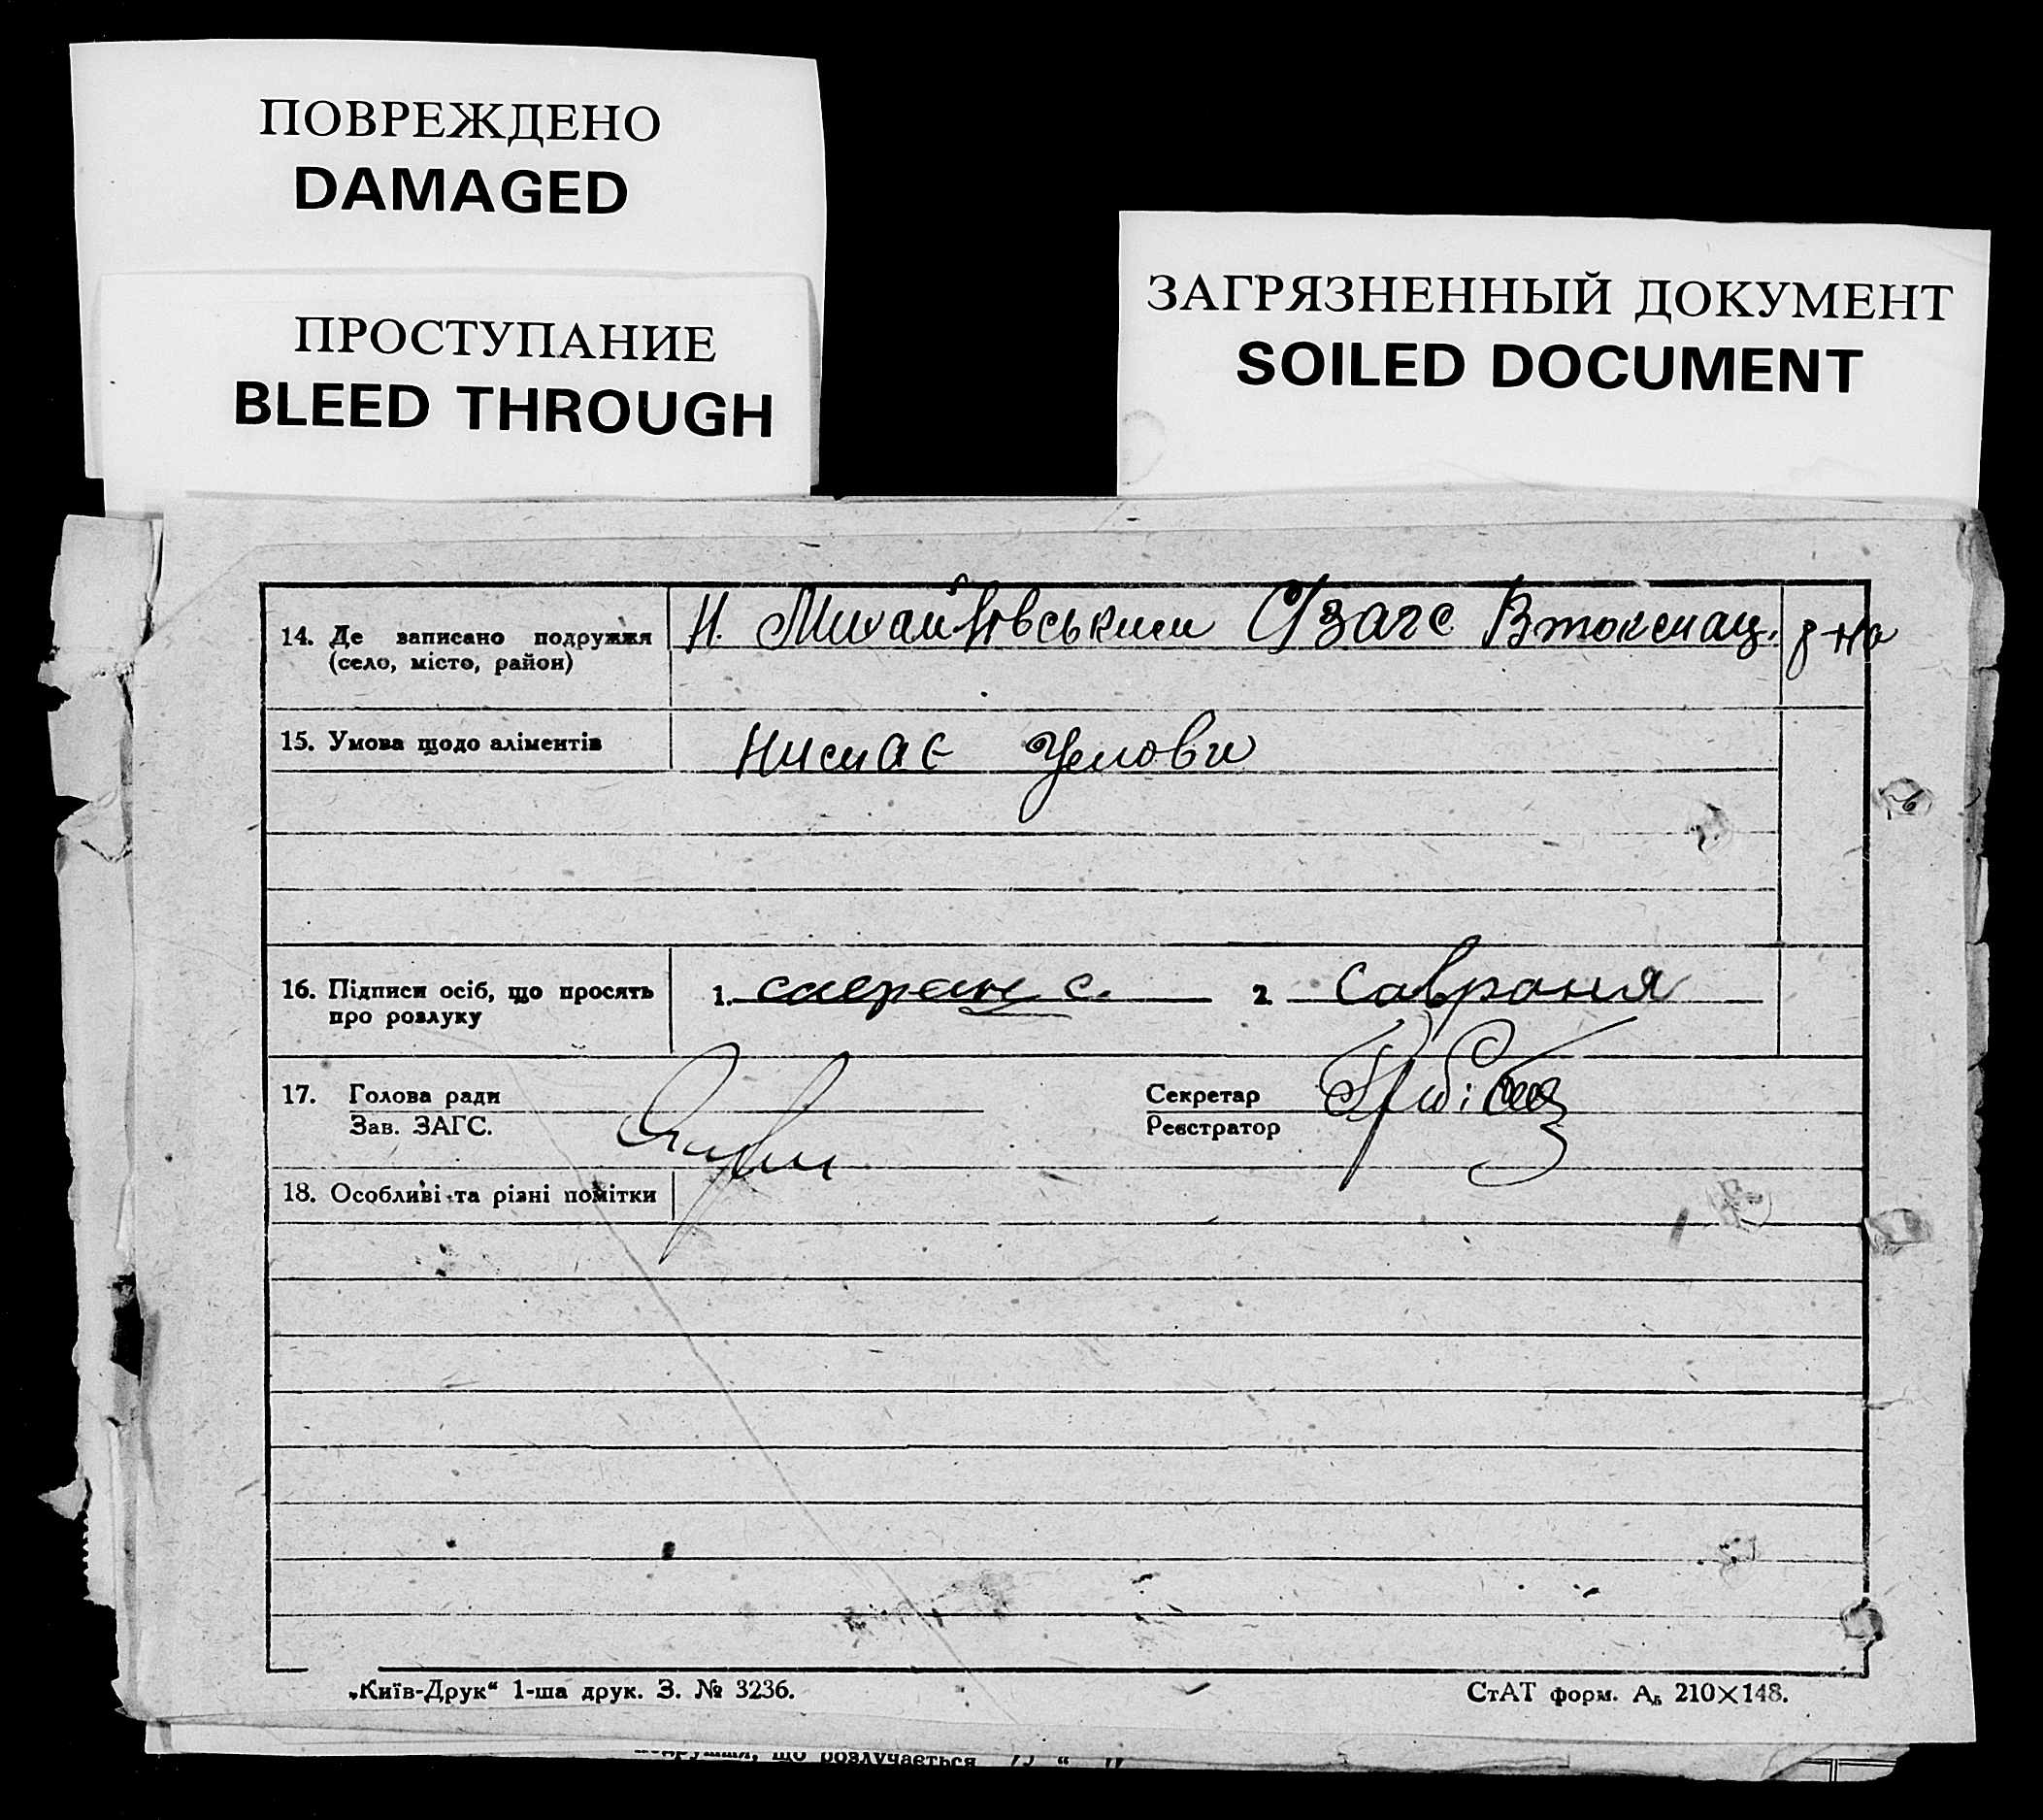 ПОВРЕЖДЕНО
DAMAGED
ПРОСТУПАНИЕ
BLEED THROUGH
ЗАГРЯЗНЕННЫЙ ДОКУМЕНТ
SOILED DOCUMENT
14. Де записано подружжя (село, місто, район)
Н. Михайлівським С/загс Втокмац. р-на
15. Умова щодо аліментів
нимає Умови
16. Підписи осіб, що просять про розлуку
1. с. 2. Савраня
17. Голова ради
Зав. ЗАГС.
Секретар
Реєстратор
18. Особливі та різні помітки
„Київ-Друк“ 1-ша друк. З. № 3236.
СтАТ форм. А₅ 210×148.
подружжя, що розлучається